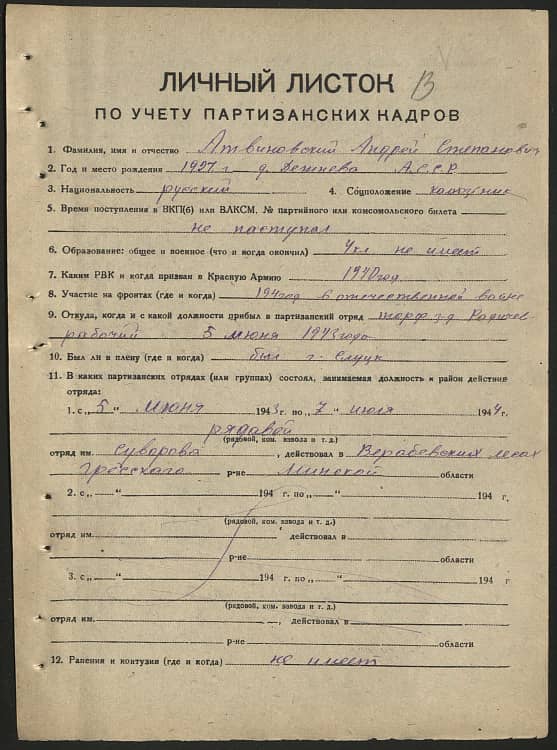 В
ЛИЧНЫЙ ЛИСТОК
ПО УЧЕТУ ПАРТИЗАНСКИХ КАДРОВ
1. Фамилия, имя и отчество Атвиновский Андрей Степанович
2. Год и место рождения 1927 г д. А.С.С.Р
3. Национальность русский 4. Соцположение колхозник
5. Время поступления в ВКП(б) или ВЛКСМ, № партийного или комсомольского билета
не поступал
6. Образование: общее и военное (что и когда окончил) 4 кл не имеет
7. Каким РВК и когда призван в Красную Армию 1940 год
8. Участие на фронтах (где и когда) 194 год в отечественной войне
9. Откуда, когда и с какой должности прибыл в партизанский отряд торф. з-д
рабочий 5 июня 1943 года
10. Был ли в плену (где и когда) был г. Слуцк
11. В каких партизанских отрядах (или группах) состоял, занимаемая должность и район действие
отряда:
1. с „5 “ июня 1943 г. по „7 “ июля 1944 г.
рядавой
(рядовой, ком. взвода и т. д.)
отряд им. Суворова, действовал в лесах
Гресского р-не Минской области
2. с „ “ 194 г. по „ “ 194 г,
(рядовой, ком. взвода и т. д.)
отряд им. , действовал в
р-не области
3. с „ “ 194 г. по „ “ 194 г
(рядовой, ком. взвода и т. д.)
отряд им. , действовал в
р-не области
12. Ранения и контузии (где и когда) не имеет